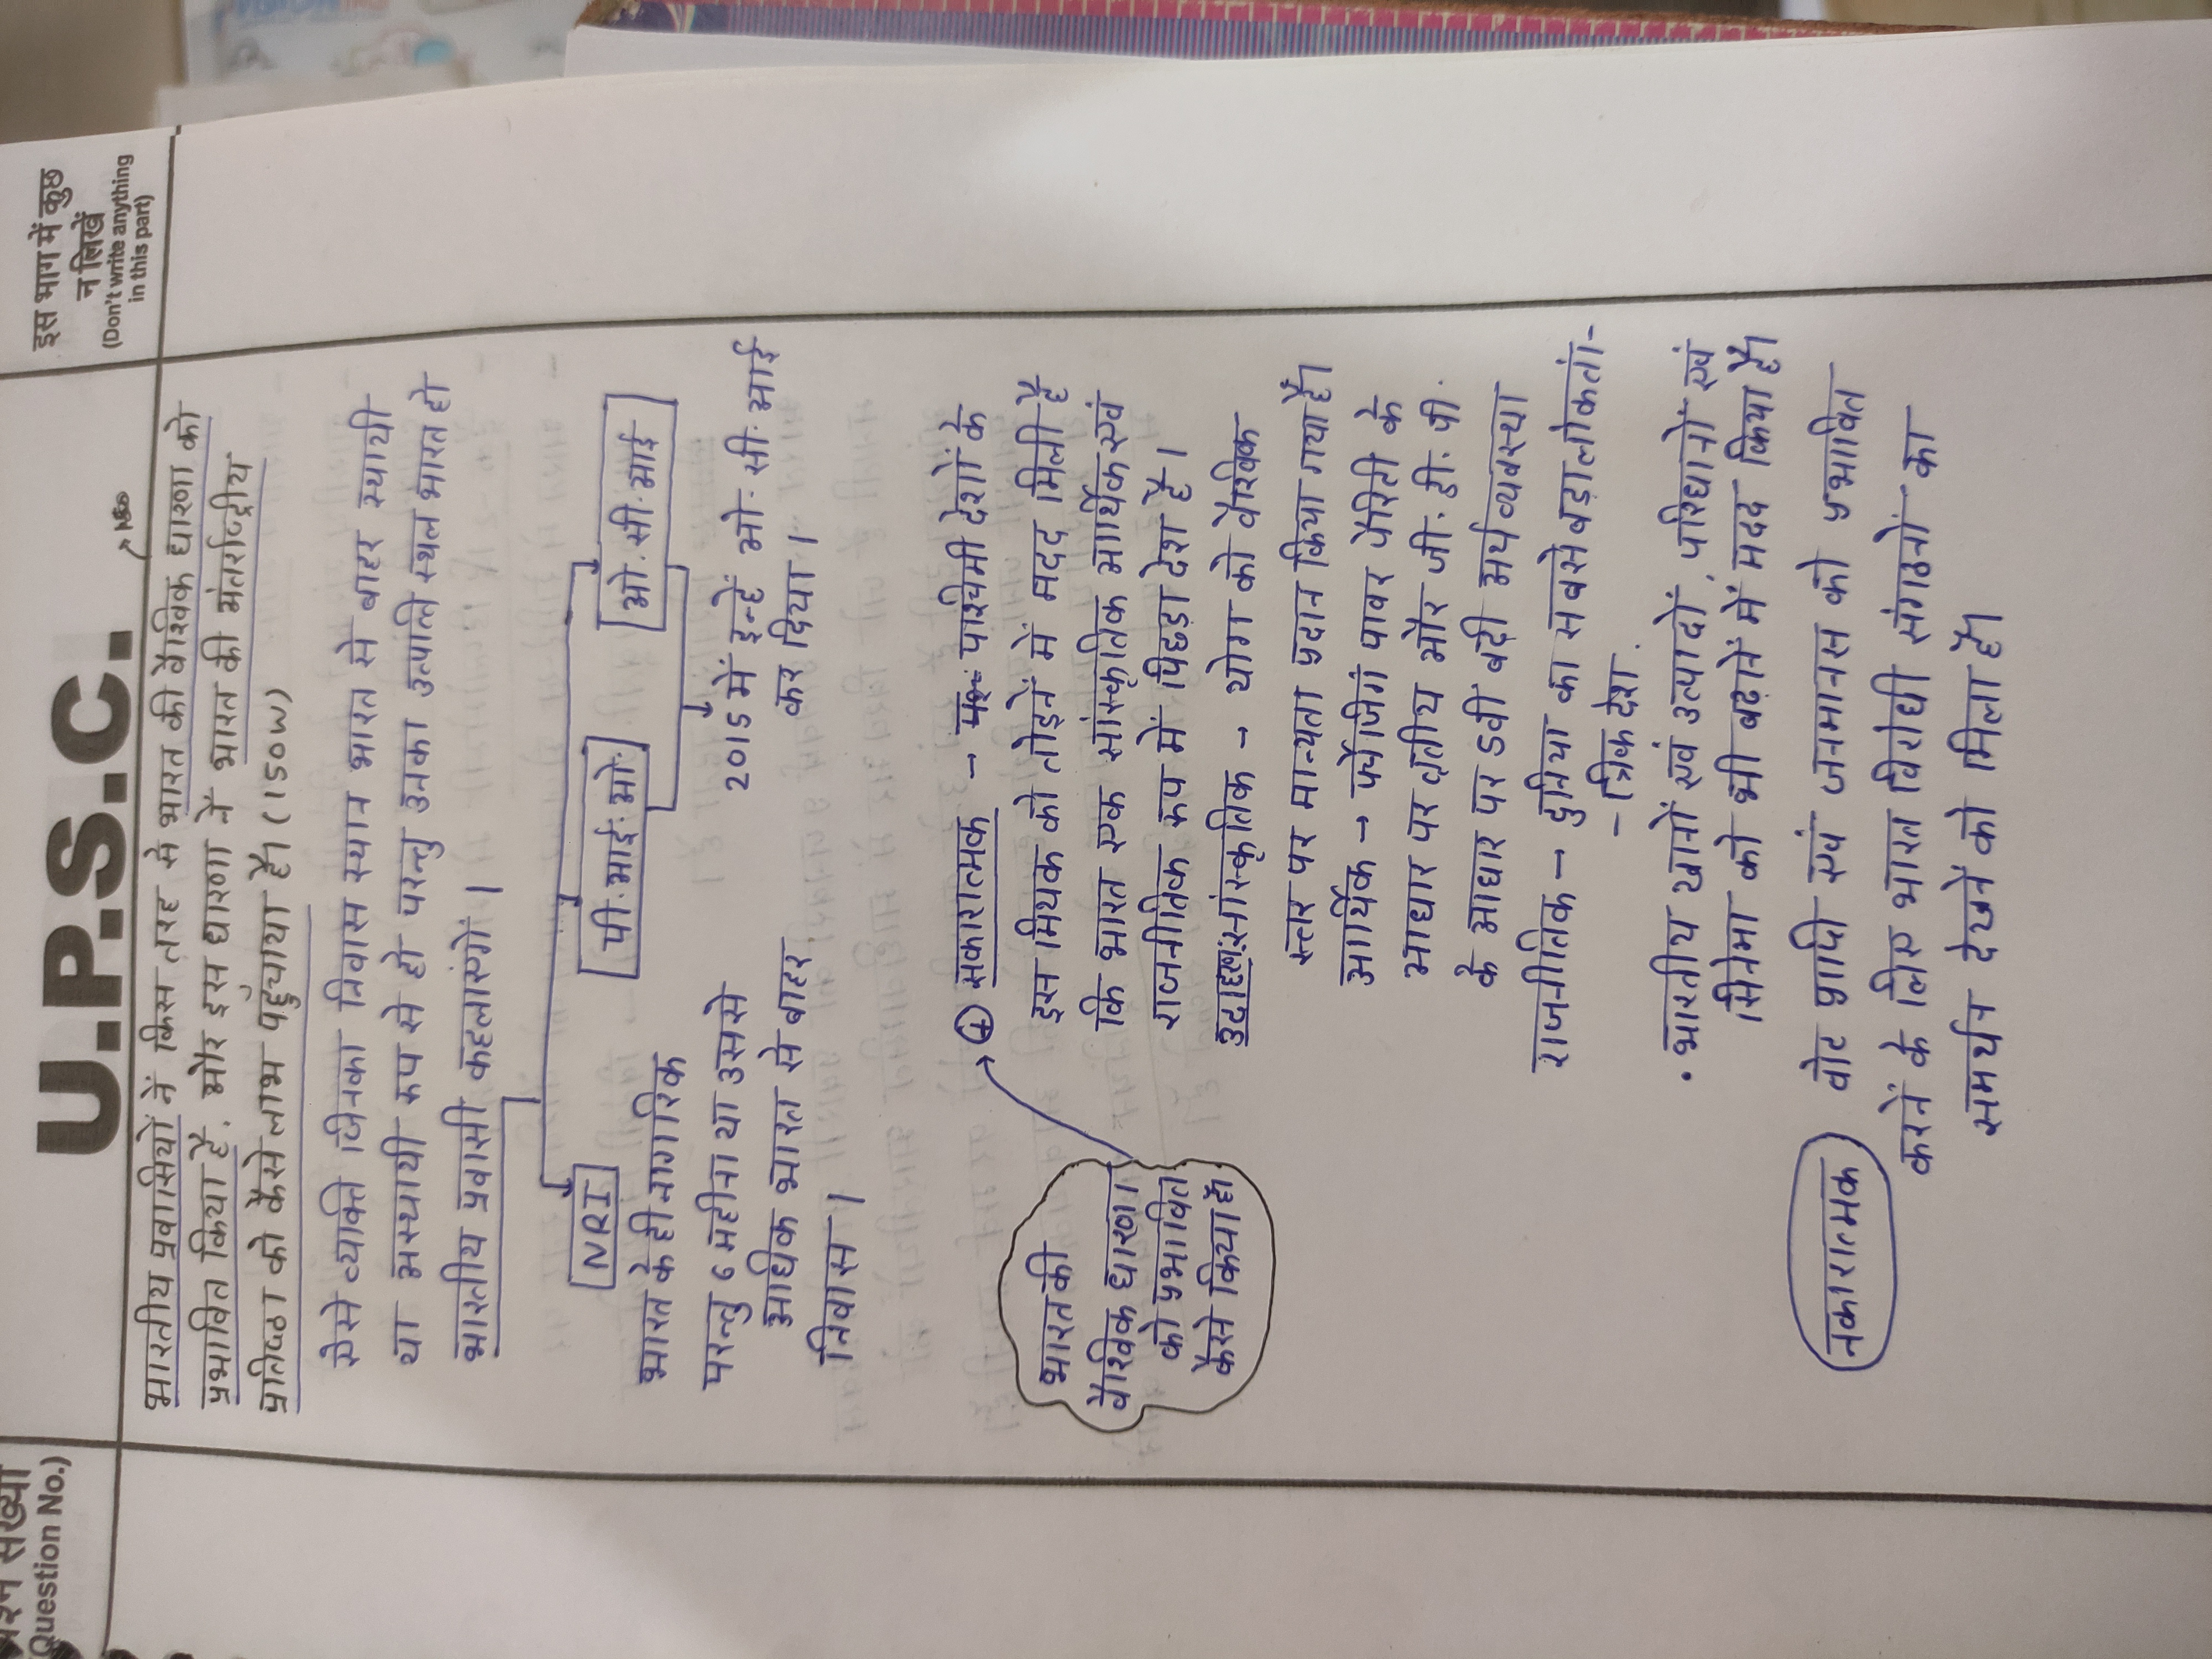 प्रश्न संख्या
(Question No.)
U.P.S.C.
इस भाग में कुछ
न लिखें
(Don't write anything
in this part)
भारतीय प्रवासियों नें किस तरह से भारत की वैश्विक धारणा को
प्रभावित किया है, और इस धारणा नें भारत की अंतर्राष्ट्रीय
प्रतिष्ठा को कैसे लाभ पहुँचाया है। (150W)
ऐसे व्यक्ति जिनका निवास स्थान भारत से बाहर स्थायी
या अस्थायी रूप से हो परन्तु उनका उत्पत्ति स्थल भारत हो
भारतीय प्रवासी कहलाएंगें।
NRI
पी.आई.ओ.
ओ.सी.आई
भारत के ही नागरिक
परन्तु 6 महीना या उससे
अधिक भारत से बाहर
निवास।
2015 में इन्हें ओ.सी.आई
कर दिया।
भारत की
वैश्विक धारणा
को प्रभावित
कैसे किया है।
+ सकारात्मक → पश्चिमी देशों के
इस मिथक को तोड़नें में मदद मिली है
कि भारत एक सांस्कृतिक आर्थिक एवं
राजनीतिक रूप में पिछड़ा देश है।
उदाहरण: सांस्कृतिक → योग को वैश्विक
स्तर पर मान्यता प्रदान किया गया है।
आर्थिक → पर्चेजिगं पावर पेरिटी के
आधार पर तृतीय और जी.डी.पी.
के आधार पर 5वीं बड़ी अर्थव्यवस्था
राजनीतिक → दुनिया का सबसे बड़ा लोकतां-
- त्रिक देश.
• भारतीय खानों एवं उत्पादों, परिधानों एवं
सिनेमा को भी बढ़ानें में मदद किया है।
नकारात्मक
वोट प्राप्ति एवं जनमानस को प्रभावित
करनें के लिए भारत विरोधी संगठनों का
समर्थन देखनें को मिला है।